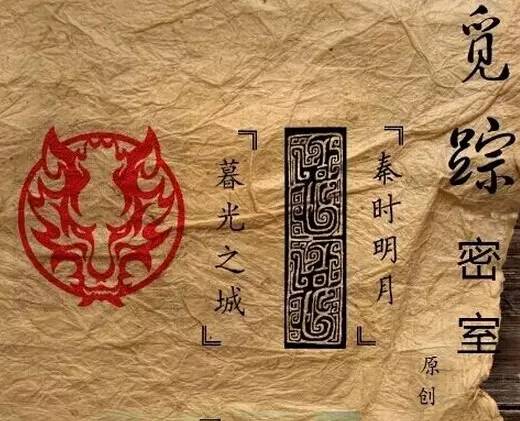 觅踪密室
原创
『秦时明月』
『暮光之城』